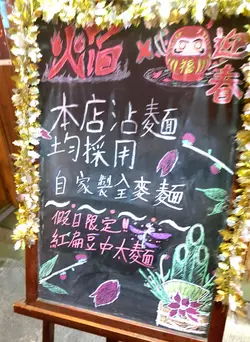 火焰 × 福 迎春
本店沾麵
均採用
自家製全麥麵
假日限定!!
紅扁豆中太麵